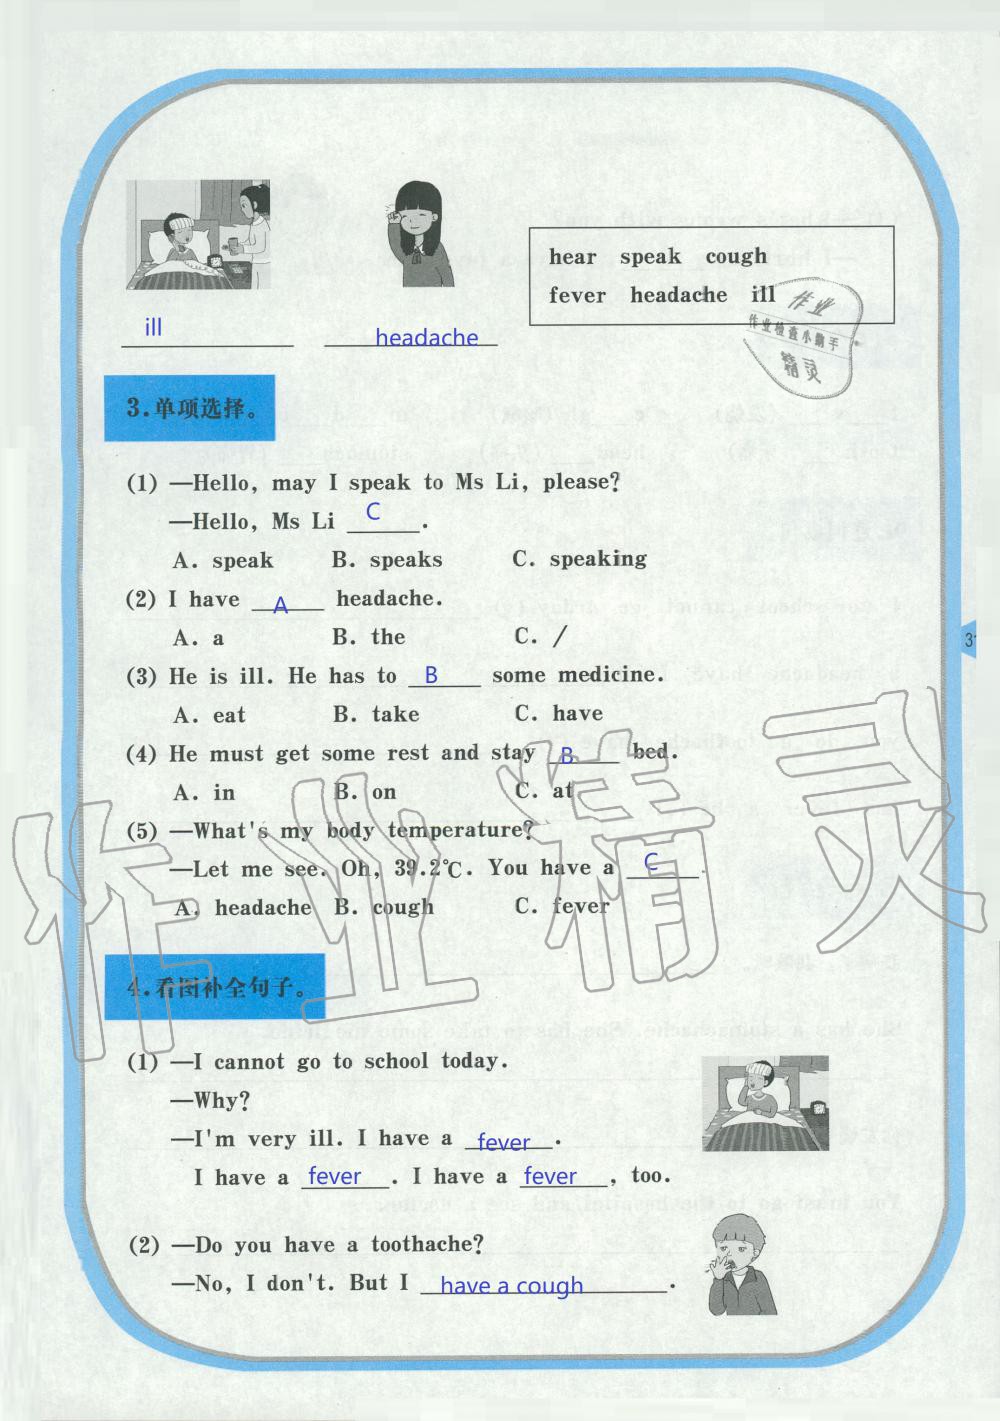 hear speak cough
fever headache ill
ill
headache
3.单项选择。
(1) —Hello, may I speak to Ms Li, please?
—Hello, Ms Li C.
A. speak B. speaks C. speaking
(2) I have A headache.
A. a B. the C. /
(3) He is ill. He has to B some medicine.
A. eat B. take C. have
(4) He must get some rest and stay B bed.
A. in B. on C. at
(5) —What's my body temperature?
—Let me see. Oh, 39.2℃. You have a C.
A. headache B. cough C. fever
4.看图补全句子。
(1) —I cannot go to school today.
—Why?
—I'm very ill. I have a fever.
I have a fever. I have a fever, too.
(2) —Do you have a toothache?
—No, I don't. But I have a cough.
31
作业
作业检查小助手
精灵
作业精灵